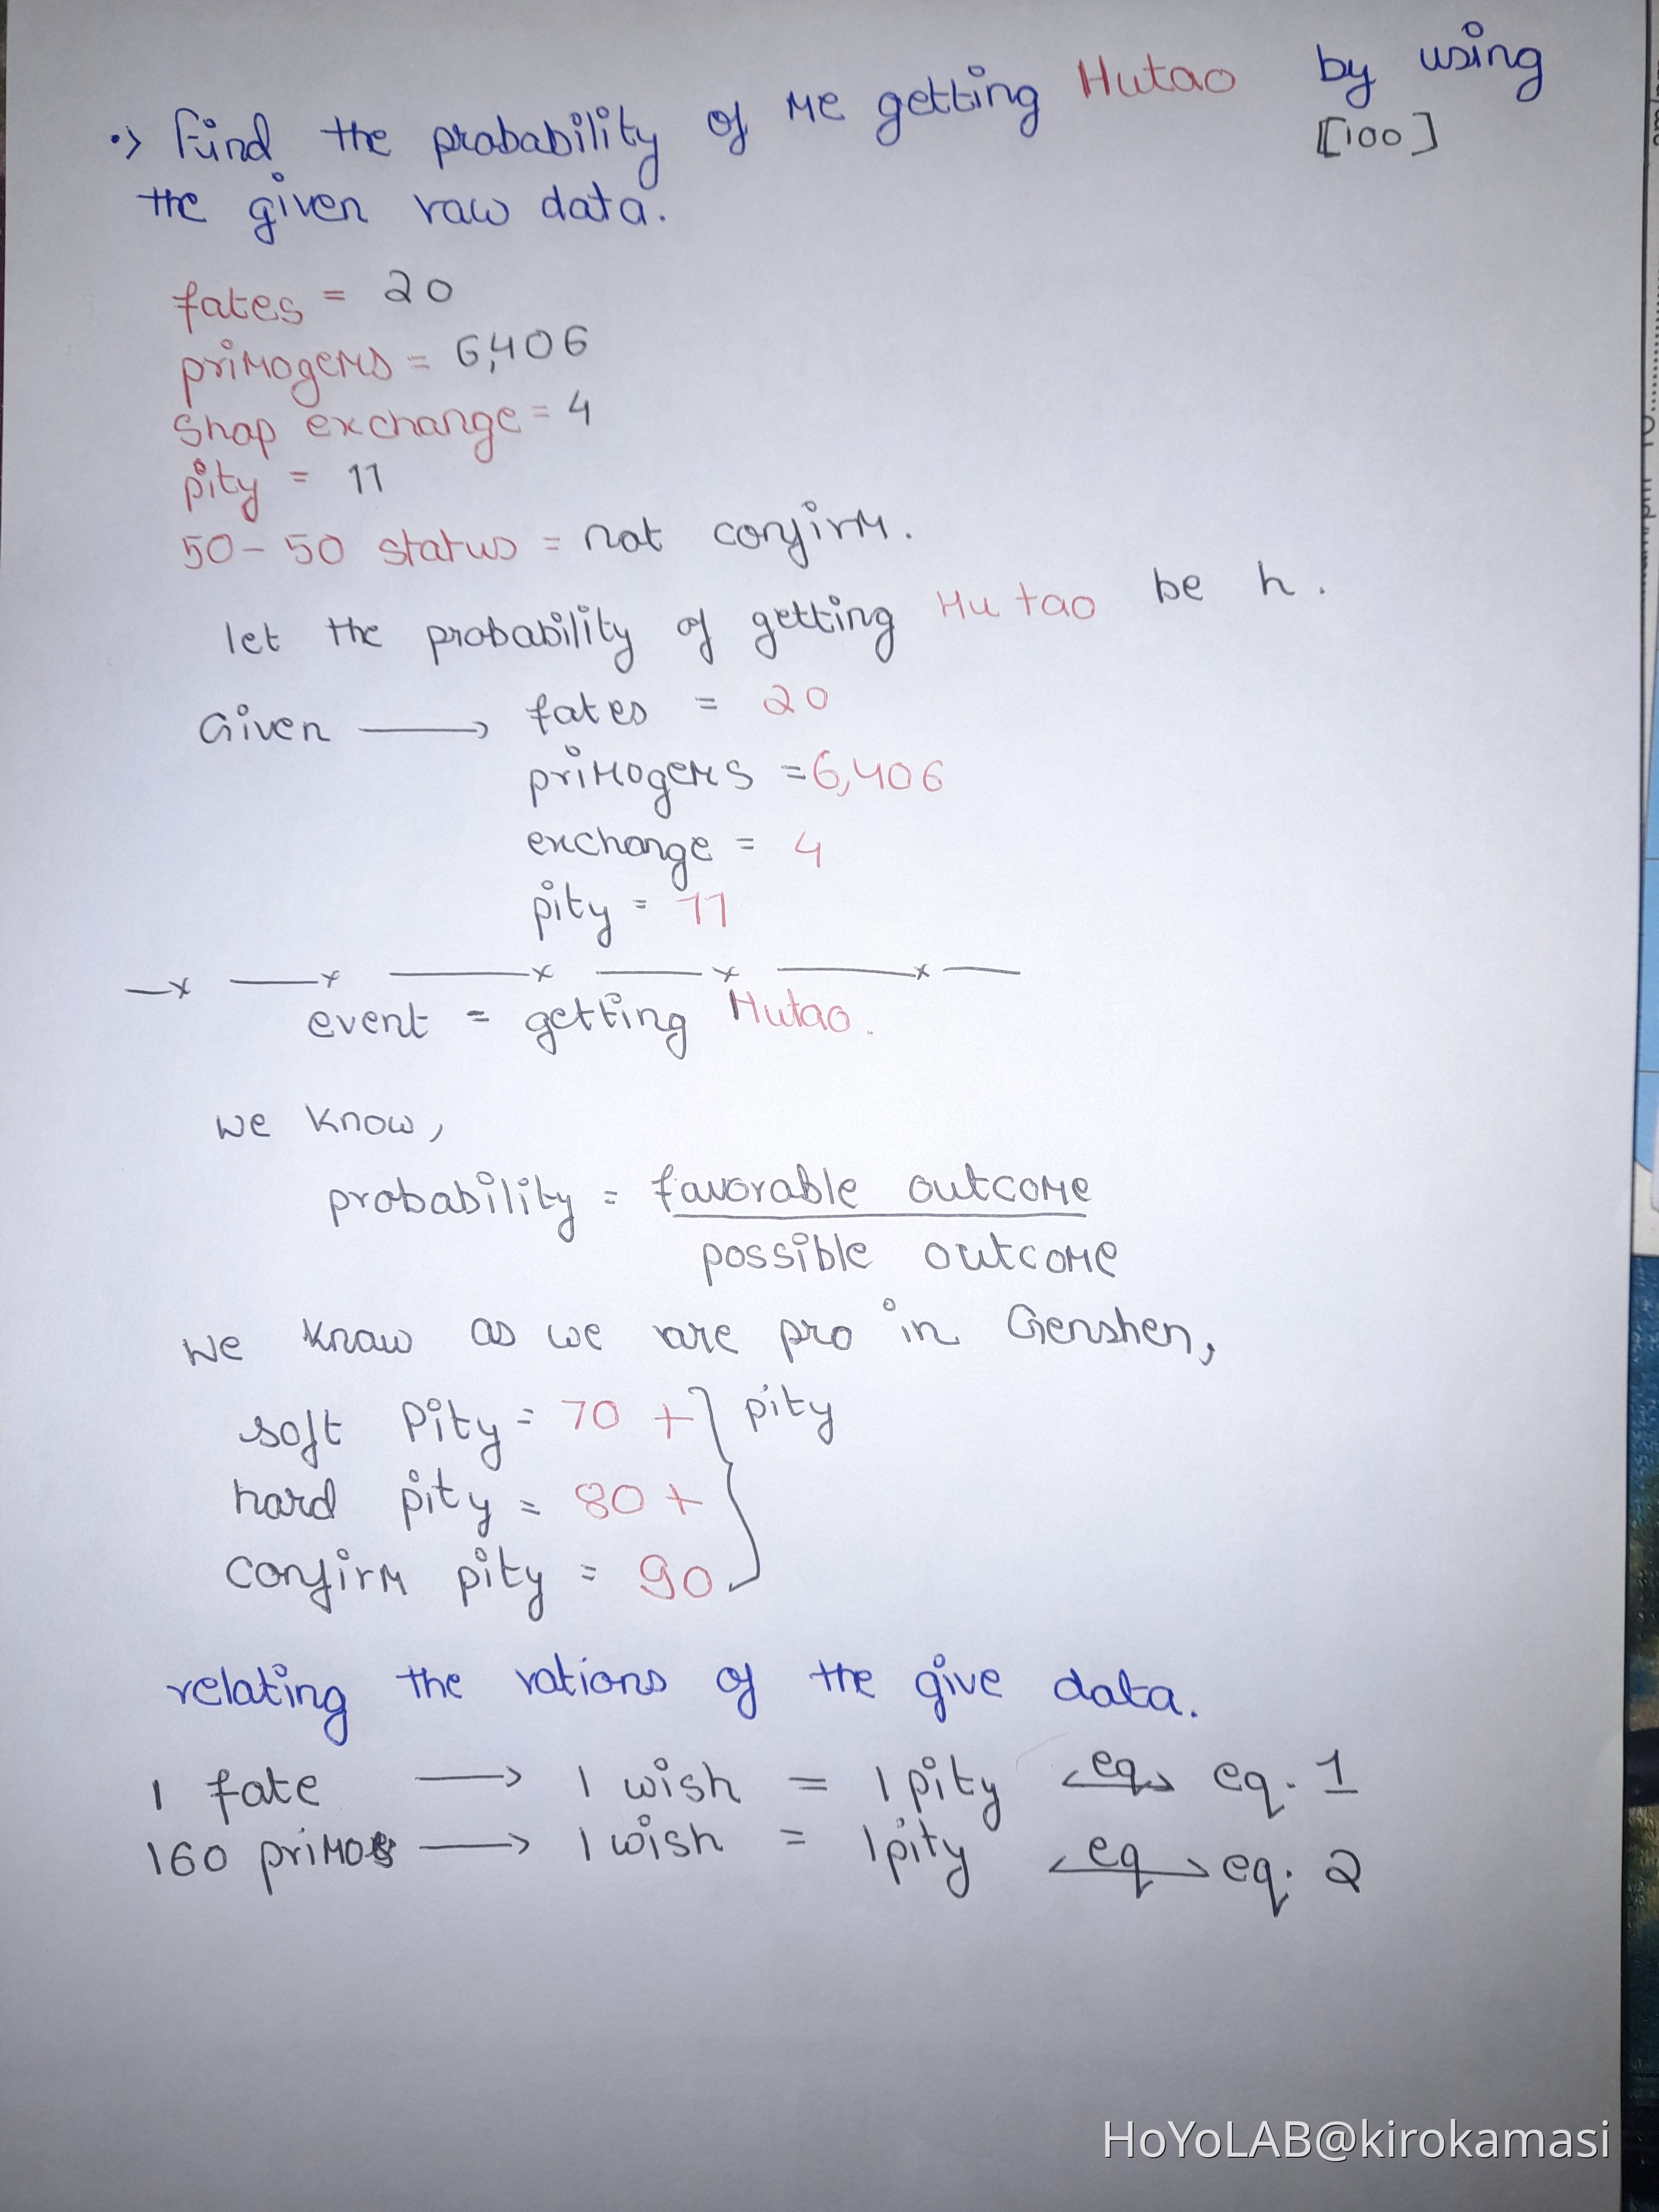 •> Find the probability of me getting Hutao by using
[100]
the given raw data.
fates = 20
primogems = 6,406
Shop exchange = 4
pity = 11
50-50 status = not confirm.
let the probability of getting Hu tao be h.
Given → fates = 20
primogems = 6,406
exchange = 4
pity = 11
event = getting Hutao.
we know,
probability = favorable outcome
possible outcome
we know as we are pro in Genshen,
soft Pity = 70 + } pity
hard pity = 80 +
confirm pity = 90
relating the rations of the give data.
1 fate → 1 wish = 1 pity <eq> eq. 1
160 primos → 1 wish = 1 pity <eq> eq. 2
HoYoLAB@kirokamasi